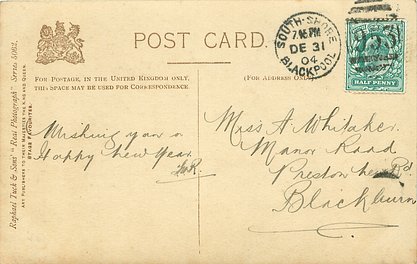 POST CARD.
FOR POSTAGE, IN THE UNITED KINGDOM ONLY,
THIS SPACE MAY BE USED FOR CORRESPONDENCE
(FOR ADDRESS ON
Raphael Tuck & Sons' "Real Photograph" Series
ART PUBLISHERS TO THEIR MAJESTIES THE KING AND QUEEN.
STAGE FAVOURITES.
SOUTH-SHORE
PM
DE 31
04
BLACKPOOL
HALF PENNY
Wishing you a
Happy New Year.
Miss A. Whitaker
Manor Road
Preston New Rd
Blackburn